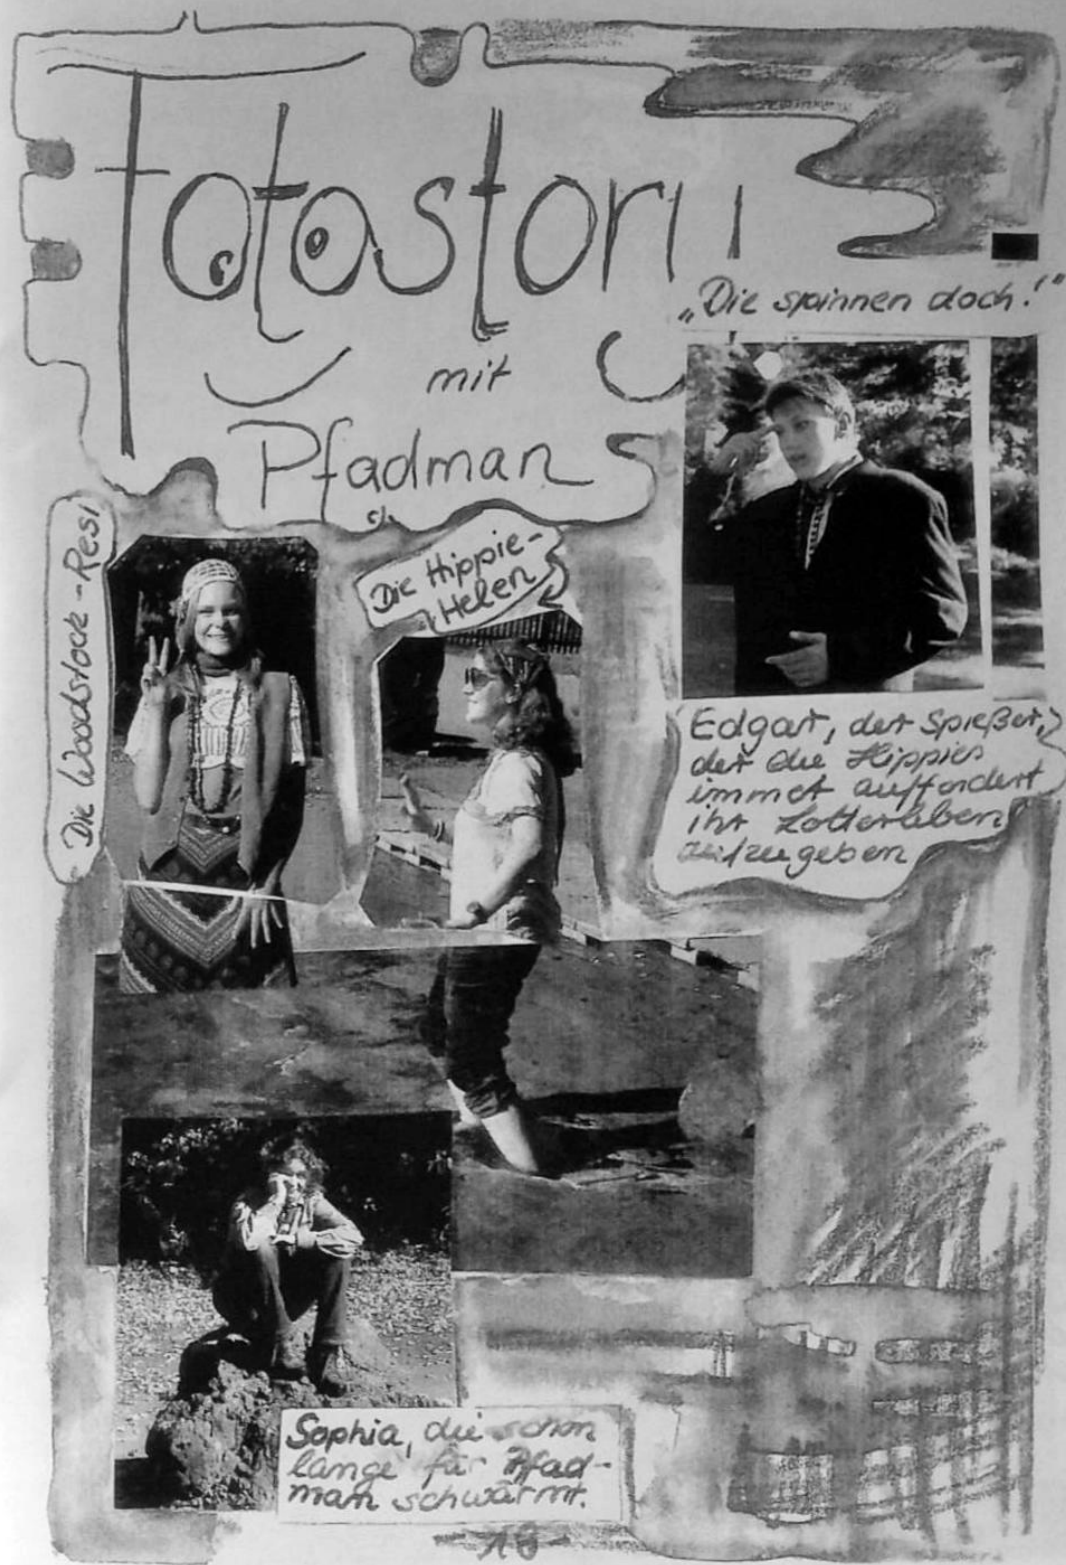 Fotostory
mit
Pfadman
"Die spinnen doch!"
Die Woodstock-Resi
Die Hippie-
Helen
Edgar, der Spießer,
der die Hippies
immer auffordert
ihr Lotterleben
aufzugeben
Sophia, die schon
lange für Pfad-
man schwärmt.